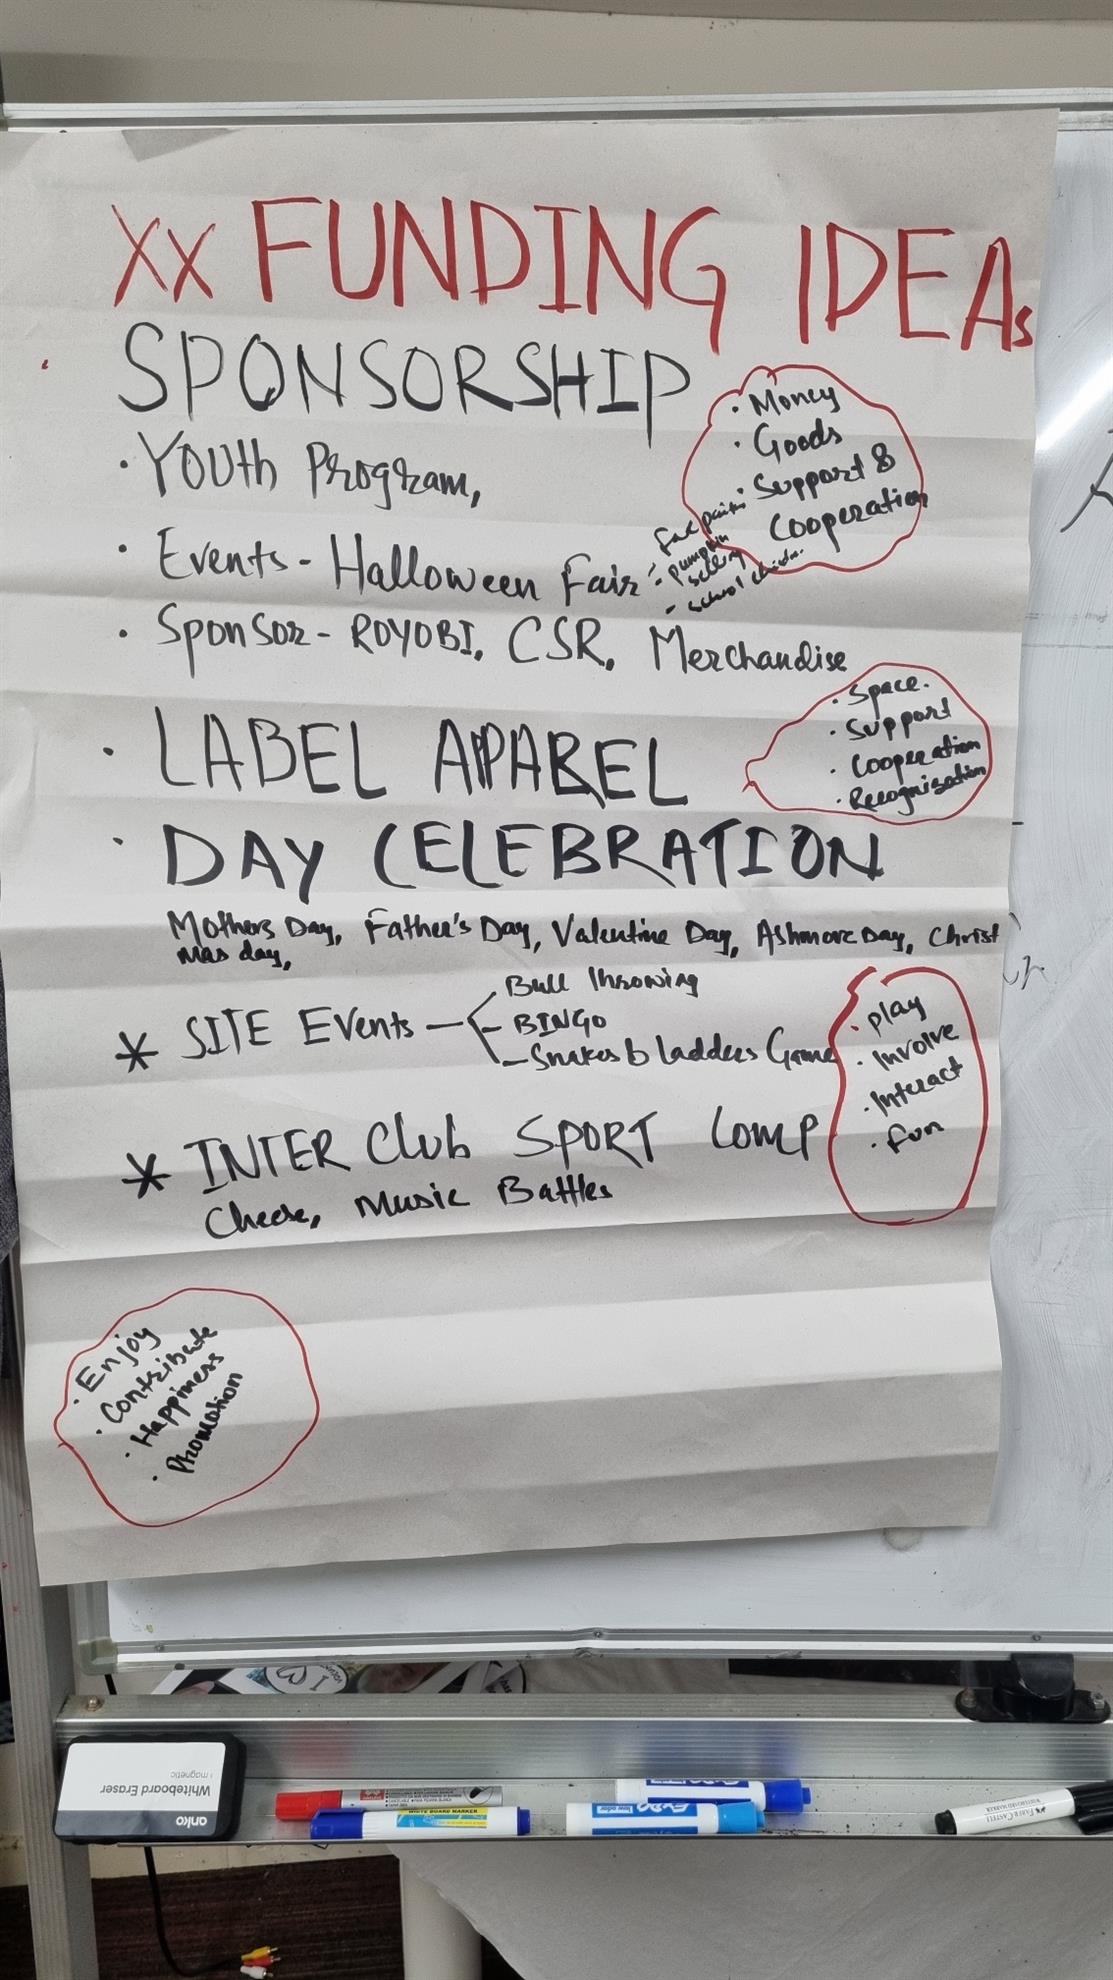 XX FUNDING IDEAs
SPONSORSHIP
• Money
• Goods
• Support &
Cooperation
• YOUth Program,
• Events - Halloween Fair
- Face paint
- pumpkin
selling
- school
• Sponsor - ROYOBI, CSR, Merchandise
• Space.
• Support
• Cooperation
• Recognisation
• LABEL APPAREL
• DAY CELEBRATION
Mothers Day, Father's Day, Valentine Day, Ashmore Day, Christ
mas day,
* SITE Events
Bull Throwing
- BINGO
- Snakes & Ladders Game
• play
• Involve
• Interact
• fun
* INTER Club SPORT Comp
Cheese, Music Battles
• Enjoy
• Contribute
• Happiness
• Promotion
Whiteboard Eraser
magnetic
anko
WHITE BOARD MARKER
EXPO
FABER-CASTELL
WHITEBOARD MARKER